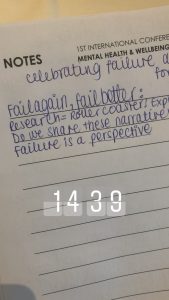 1ST INTERNATIONAL CONFERE
NOTES MENTAL HEALTH & WELLBEING
celebrating failure a
for
Fail again, fail better:
Research = Roller coaster, Exp
Do we share these narrative
Failure is a perspective
14 39